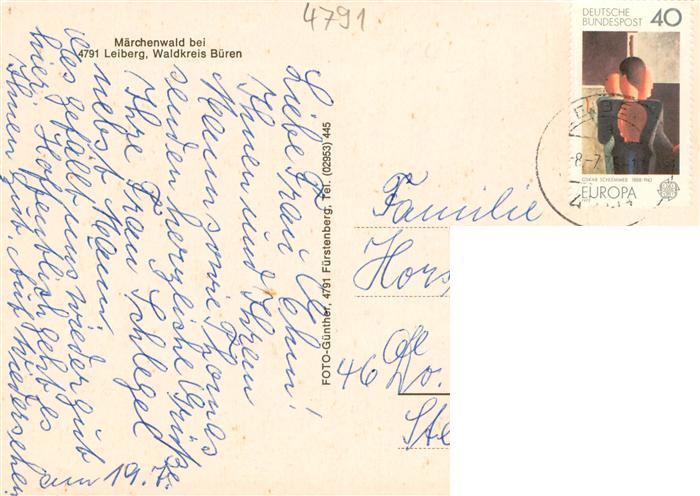 4791
Märchenwald bei
4791 Leiberg, Waldkreis Büren
Liebe Frau Lehn!
Ihnen und Ihrem
Mann sowie Thomas
senden herzliche Grüße
Ihre Frau Schlegel
nebst Mann
es gefällt uns wieder gut
hier. Hoffentlich geht es
Ihnen gut. Auf Wiedersehen
am 19.7.
FOTO-Günther, 4791 Fürstenberg, Tel. (02953) 445
DEUTSCHE
BUNDESPOST 40
OSKAR SCHLEMMER 1888-1943
EUROPA
Familie
Hors
46 Do.
Ste